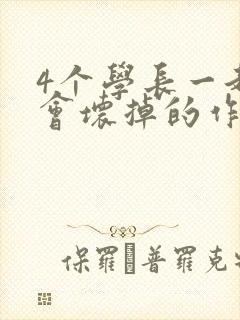 4个學長一
會壞掉的作
保羅·普羅克